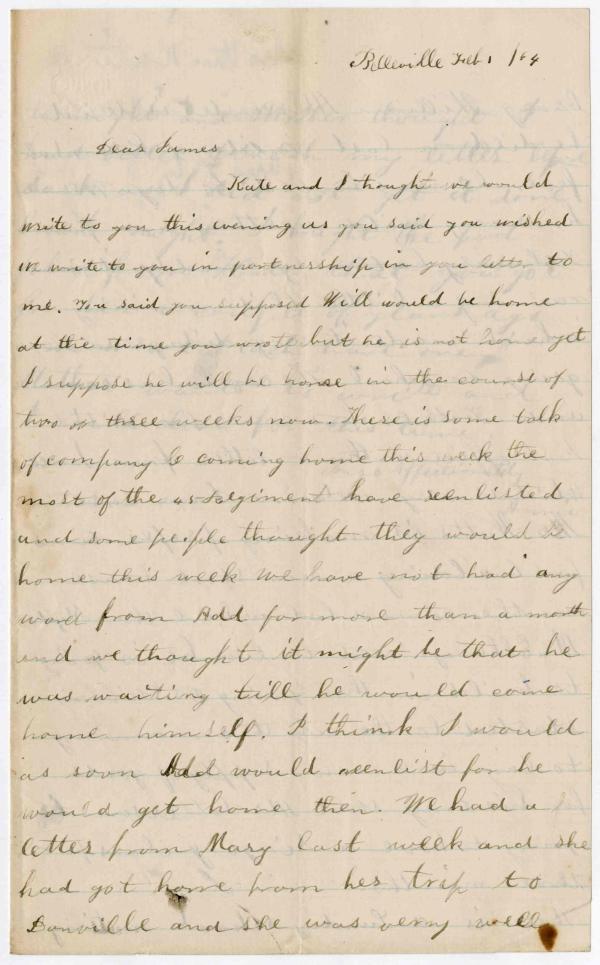 Belleville Feb 1 /64
Dear James
Kate and I thought we would
write to you this evening as you said you wished
we write to you in partnership in you letter to
me. You said you supposed Will would be home
at the time you wrote but he is not home yet
I suppose he will be home in the course of
two or three weeks now. There is some talk
of company coming home this week the
most of the 45 Regiment have reenlisted
and some people thought they would be
home this week We have not had any
word from Add for more than a month
and we thought it might be that he
was waiting till he would come
home himself. I think I would
as soon Add would reenlist for he
would get home then. We had a
letter from Mary last week and she
had got home from her trip to
Danville and she was verry well